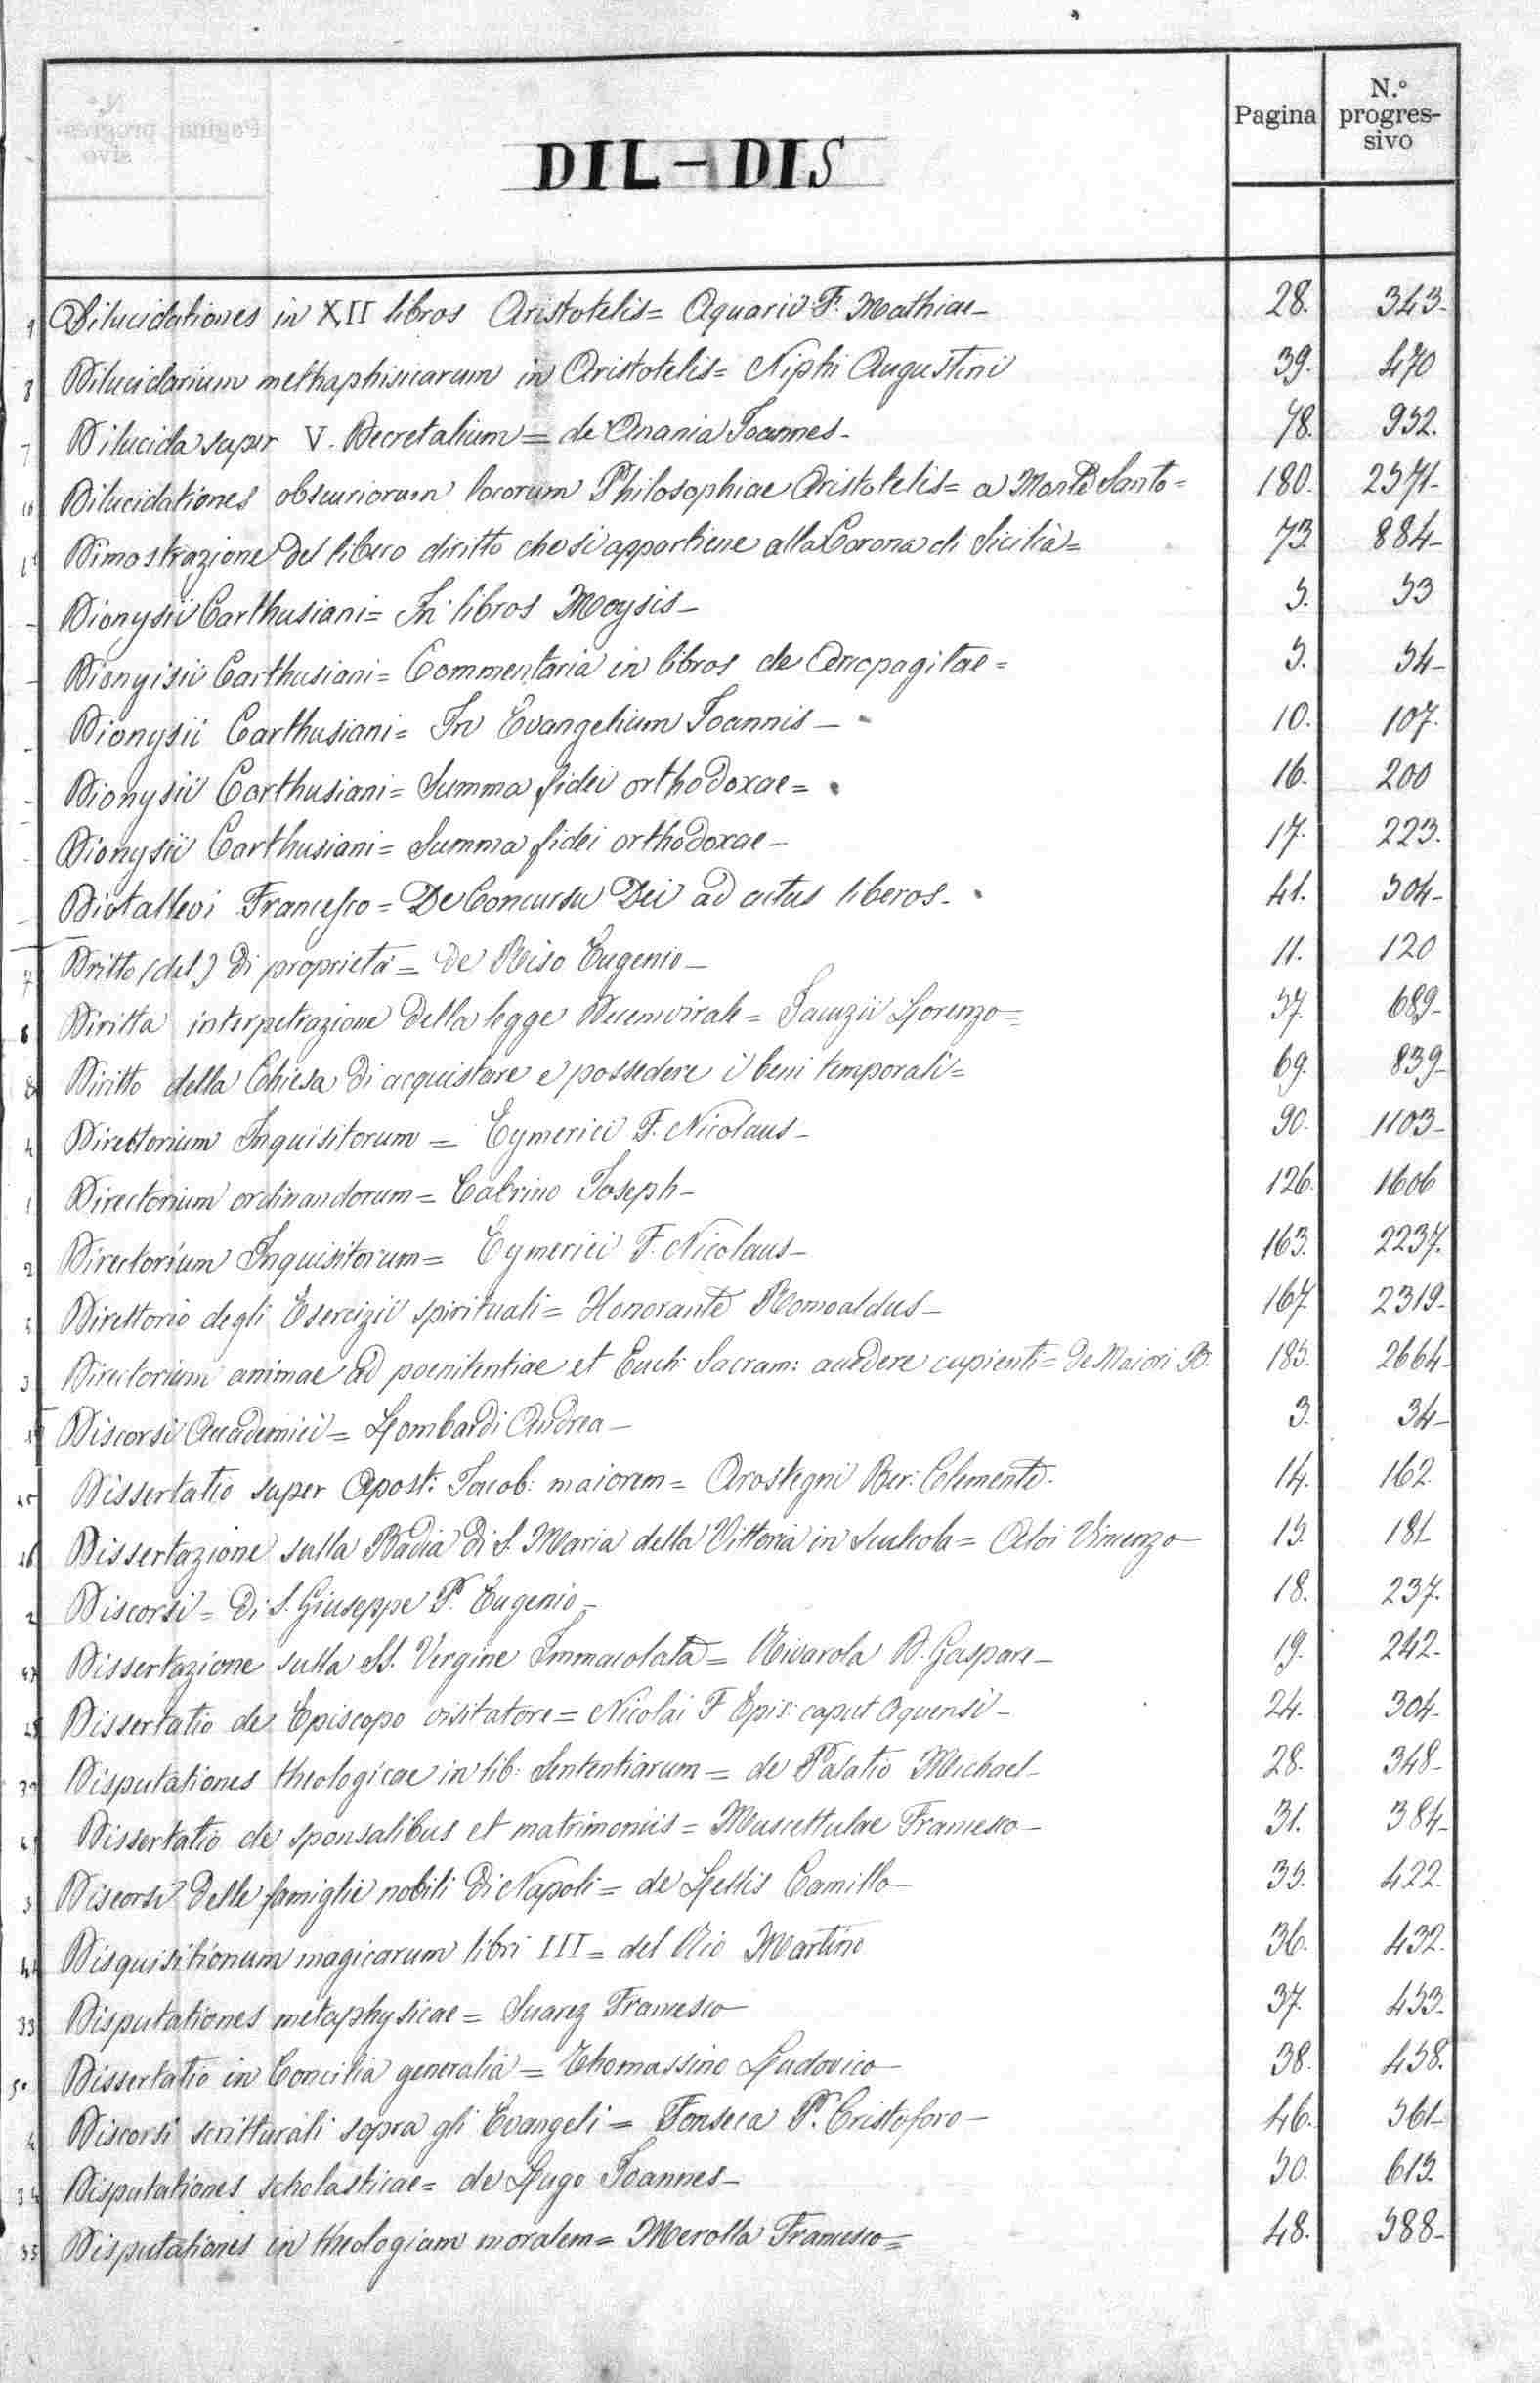 Pagina N.º progres-sivo
DIL - DIS
Dilucidationes in XII libros Aristotelis = Aquarii F. Mathiae - 28. 343-
8 Dilucidarium methaphisicarum in Aristotelis = Niphi Augustini 39. 470
7 Dilucida super V. Decretalium = de Anania Joannes - 78. 952.
Dilucidationes obscuriorum locorum Philosophiae Aristotelis = a Monte Santo = 180. 2571-
Dimostrazione del libero diritto che si appartiene alla Corona di Sicilia = 73. 884-
Dionysii Carthusiani = In libros Moysis - 5. 53
Dionyisii Carthusiani = Commentaria in libros de Areopagitae = 5. 54-
Dionysii Carthusiani = In Evangelium Joannis - 10. 107.
Dionysii Carthusiani = Summa fidei orthodoxae = 16. 200
Dionysii Carthusiani = Summa fidei orthodoxae - 17. 223.
Diotallevi Francesco = De Concursu Dei ad actus liberos - 41. 504-
7 Dritto (del) di proprietà = de Riso Eugenio - 11. 120
6 Diritta interpetrazione della legge Decemvirale = Lorenzo = 57. 689-
Diritto della Chiesa di acquistare e possedere i beni temporali = 69. 839-
4 Directorium Inquisitorum = Eymerici F. Nicolaus - 90. 1103-
1 Directorium ordinandorum = Cabrino Joseph - 126. 1606
2 Directorium Inquisitorum = Eymerici F. Nicolaus - 163. 2237.
5 Direttorio degli Esercizii spirituali = Honorante Romoaldus - 167. 2319-
3 Directorium animae ad poenitentiae et Euch: Sacram: accedere cupienti = de Maiori B. 185. 2664-
Discorsi Accademici = Lombardi Andrea - 3. 34-
Dissertatio super Apost: Jacob: maiorem = Arostegni Ber: Clemente. 14. 162
Dissertazione sulla Badia di S. Maria della Vittoria in Scurcola = Aloi Vincenzo - 15. 181-
2 Discorsi = di S. Giuseppe P. Eugenio - 18. 237.
Dissertazione sulla SS. Vergine Immacolata = Rivarola D. Gaspare - 19. 242-
Dissertatio de Episcopo visitatore = Nicolai F Epis: caput Aquensi - 24. 304-
Disputationes theologicae in lib: Sententiarum = de Palatio Michael - 28. 348-
Dissertatio de sponsalibus et matrimoniis = Muscettulae Francesco - 31. 384-
3 Discorsi delle famiglie nobili di Napoli = de Lellis Camillo - 35. 422.
Disquisitionum magicarum libri III = del Rio Martino 36. 432.
33 Disputationes metaphysicae = Suarez Francesco - 37. 453-
50 Dissertatio in Concilia generalia = Thomassino Ludovico - 38. 458.
4 Discorsi scritturali sopra gli Evangeli = Fonseca P. Cristoforo - 46. 561-
34 Disputationes scholasticae = de Lugo Joannes - 50. 613.
35 Disputationes in theologiam moralem = Merolla Francesco = 48. 588-